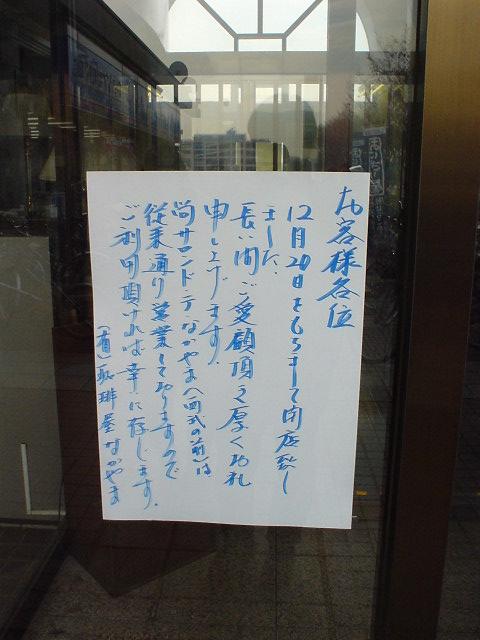 お客様各位
12月20日をもちまして閉店致し
ました。
長い間ご愛顧頂き厚くお礼
申し上げます。
尚サロンドテなかやま
従来通り営業しておりますので
ご利用頂ければ幸に存じます。
(有)珈琲屋なかやま